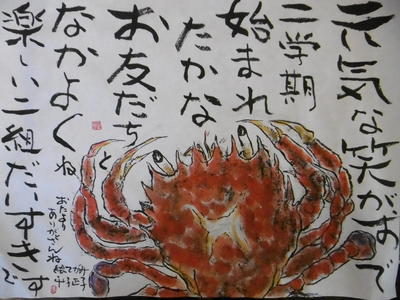 元気な笑がおで
二学期
始まれ
たかな
お友だち
と
なかよくね
楽しい二組だいすきです
おたより
ありがとうね